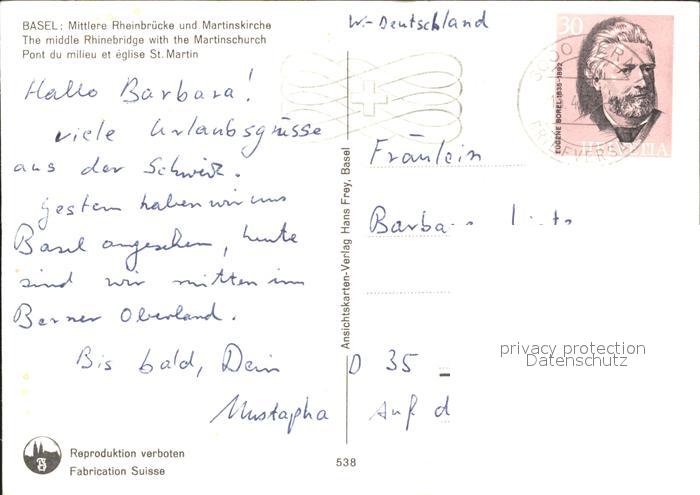 BASEL: Mittlere Rheinbrücke und Martinskirche
The middle Rhinebridge with the Martinschurch
Pont du milieu et église St. Martin
Hallo Barbara!
viele Urlaubsgrüsse
aus der Schweiz.
Gestern haben wir uns
Basel angesehen, heute
sind wir mitten im
Berner Oberland.
Bis bald, Dein
Mustapha
Reproduktion verboten
Fabrication Suisse
538
Ansichtskarten-Verlag Hans Frey, Basel
W.-Deutschland
30
EUGÈNE BOREL 1835-1892
HELVETIA
3000 BERN
BRIEFVERS
Fräulein
Barba
D 35
Auf d
privacy protection
Datenschutz